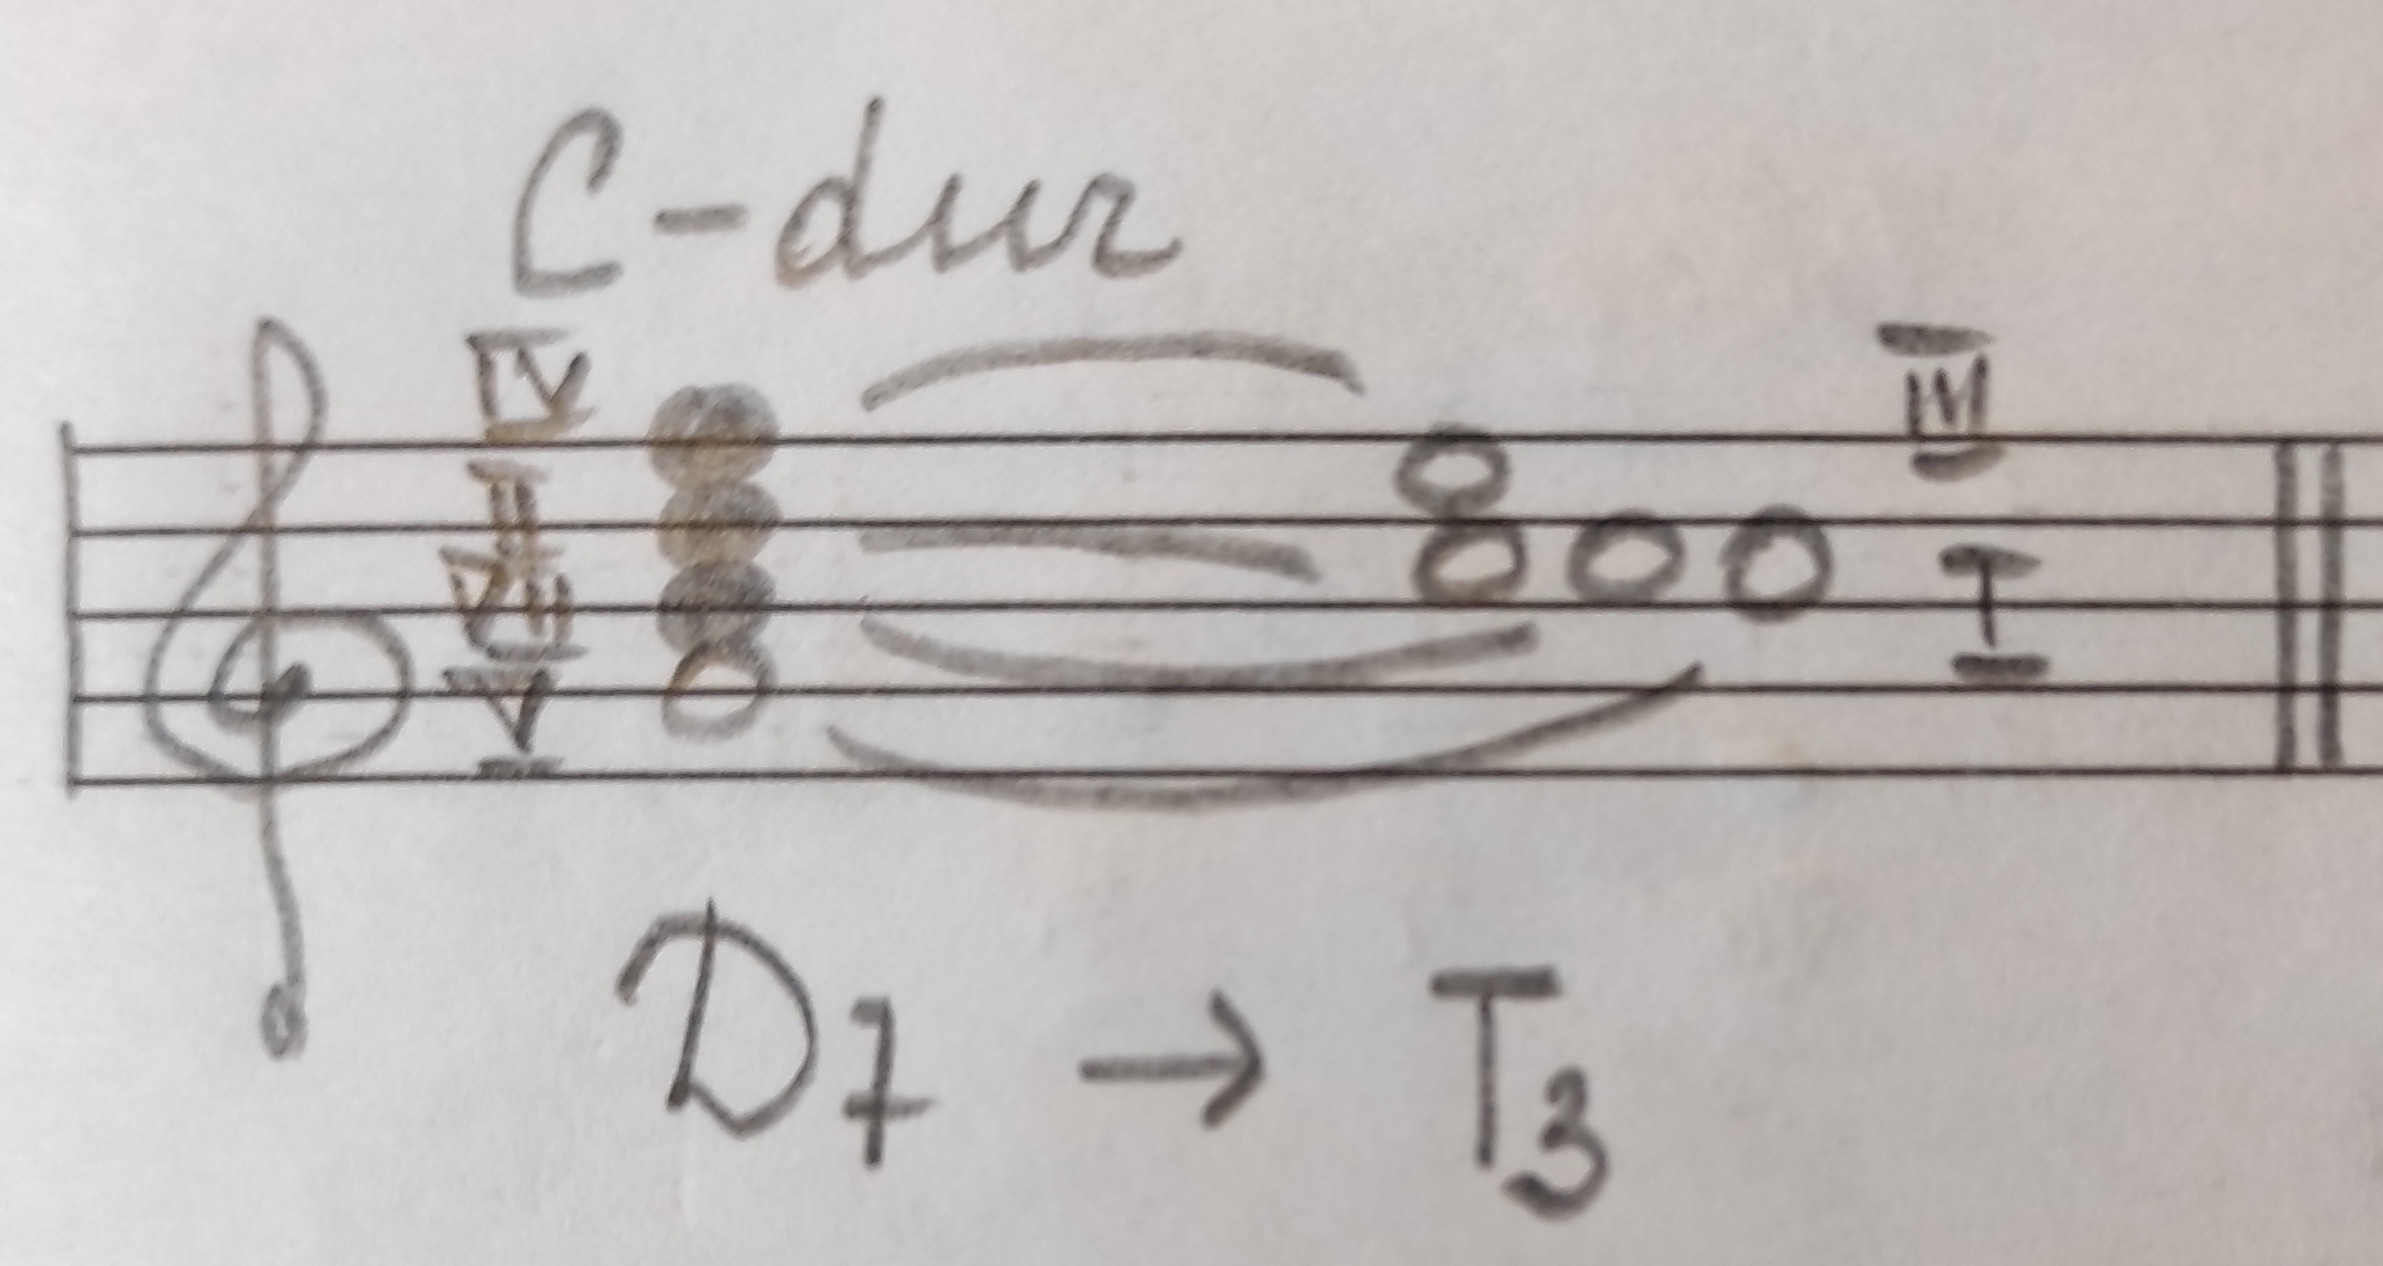 C-dur
IV
III
II
VII
I
V
D7 → T3